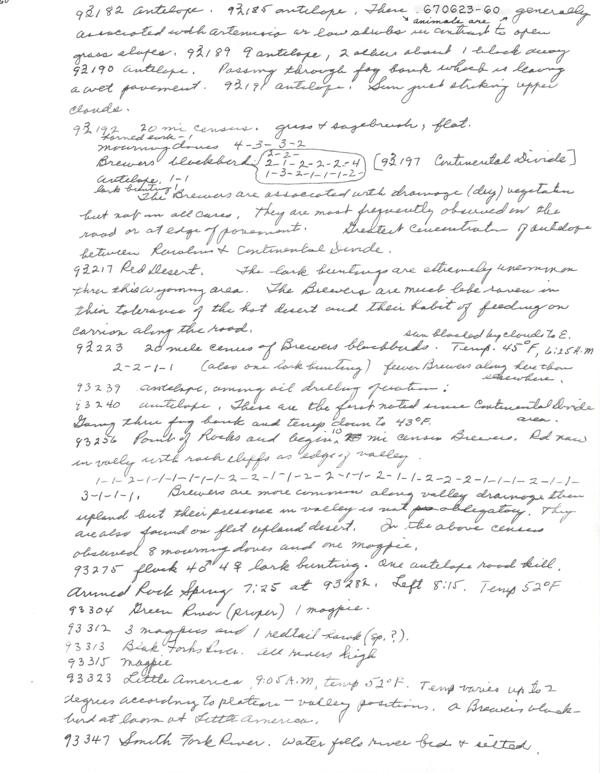 92182 antelope. 92185 antelope. These 670623-60 generally
animals are
associated with artemisia or low shrubs in contrast to open
grass slopes. 92189 9 antelope, 2 others about 1 block away
92190 antelope. Passing through fog bank which is leaving
a wet pavement. 92191 antelope. Sun just striking upper
clouds.
92192 20 mi census. grass & sagebrush, flat.
horned lark-1
mourning doves 4-3-3-2
2-2-
Brewers blackbird 2-1-2-2-2-4 [92197 Continental Divide]
1-3-2-1-1-1-2-
Antelope, 1-1
lark bunting 1
The Brewers are associated with drainage (dry) vegetation
but not in all cases. They are most frequently observed on the
road or at edge of pavement. Greatest concentration of antelope
between Rawlins & Continental Divide.
92217 Red Desert. The lark buntings are extremely uncommon
thru this Wyoming area. The Brewers are much like raven in
their tolerance of the hot desert and their habit of feeding on
carrion along the road.
sun blocked by clouds to E.
92223 20 mile census of Brewers blackbirds. Temp. 45°F, 6:15 A.M
2-2-1-1 (also one lark bunting) fewer Brewers along here than
elsewhere.
93239 antelope, among oil drilling operation.
93240 antelope. These are the first noted since Continental Divide
area.
Going thru fog bank and temp down to 43°F.
93256 Point of Rocks and begin 10 mi census Brewers. Rd now
in valley with rock cliffs as edge of valley.
1-1-2-1-1-1-1-1-2-2-1-1-2-2-1-1-2-1-1-2-2-2-1-1-1-2-1-1-
3-1-1-1. Brewers are more common along valley drainage than
upland but their presence in valley is not obligatory. They
are also found on flat upland desert. In the above census
observed 8 mourning doves and one magpie.
93275 flock 4♂ 4♀ lark bunting. One antelope road kill.
Arrived Rock Spring 7:25 at 93282. Left 8:15. Temp 52°F
93304 Green River (proper) 1 magpie.
93312 3 magpies and 1 redtail hawk (sp.?).
93313 Black Forks River. all rivers high
93315 magpie
93323 Little America 9:05 A.M, temp 52°F. Temp varies up to 2
degrees according to plateau - valley positions. a Brewers black-
bird at lawn at Little America.
93347 Smith Fork River. Water fills river bed & silted.